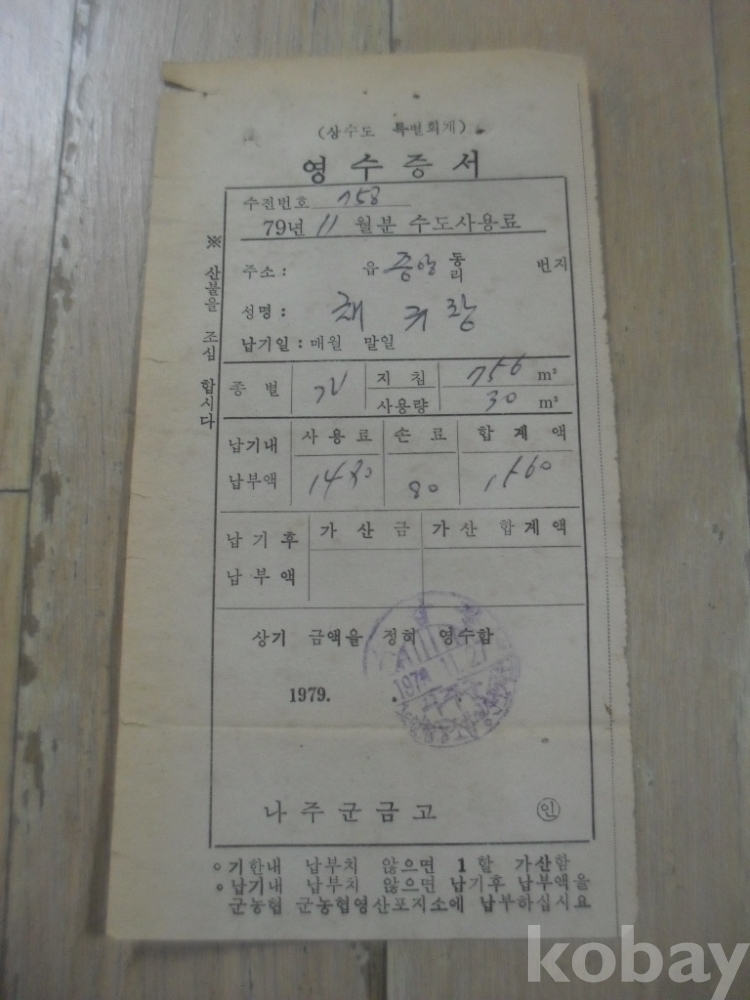 (상수도 특별회계)
영수증서
수전번호 758
79년 11 월분 수도사용료
주소: 읍 중앙 동리 번지
성명: 채 귀 랑
납기일: 매월 말일
종별 가 지침 756 m³
사용량 30 m³
납기내 납부액 사용료 손료 합계액
1480 80 1,560
납기후 납부액 가산금 가산 합계액
상기 금액을 정히 영수함
1979.
나주군금고 인
※ 산불을 조심 합시다
○기한내 납부치 않으면 1할 가산함
●납기내 납부치 않으면 납기후 납부액을
군농협 군농협영산포지소에 납부하십시요
kobay